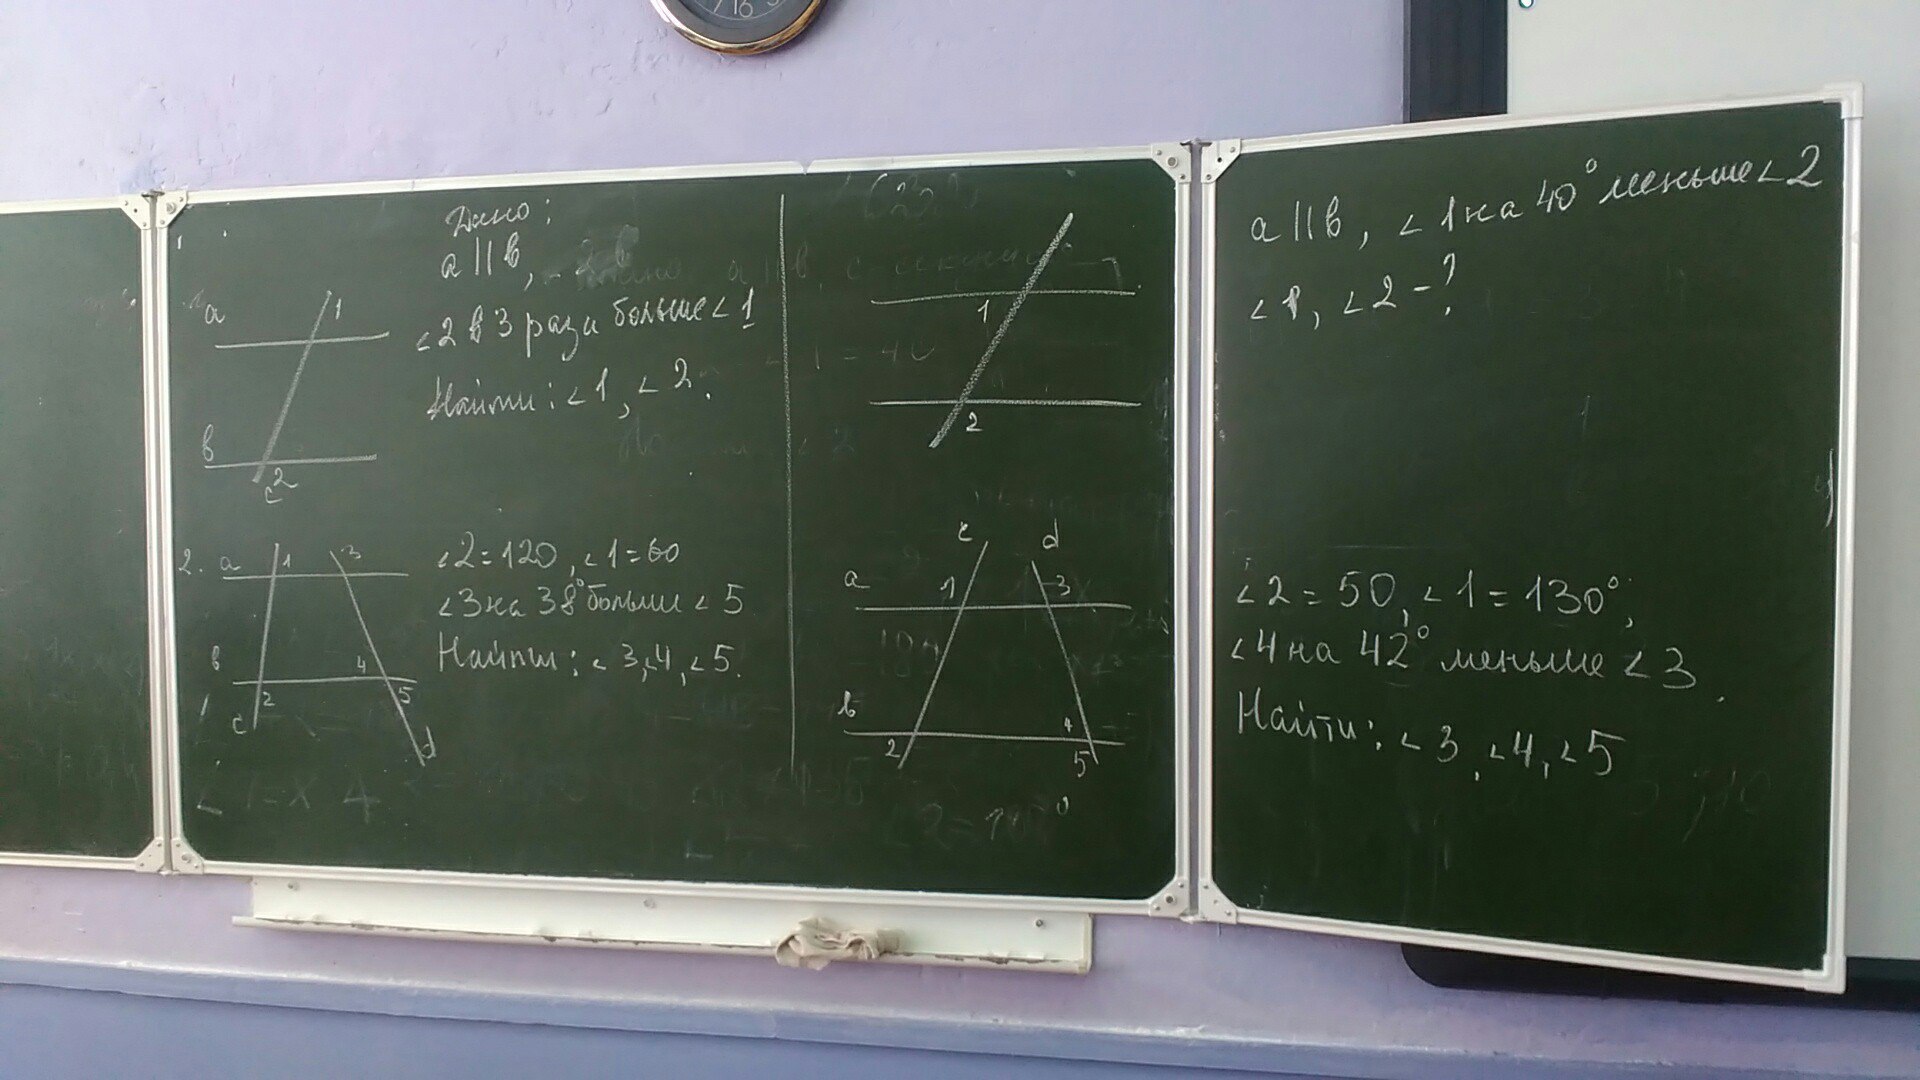 Дано:
a || в,
∠2 в 3 раза больше ∠1
Найти: ∠1, ∠2.
a
1
в
c
2
2.
a
1
3
в
4
2
5
c
d
∠2=120, ∠1=60
∠3 на 38° больше ∠5
Найти: ∠3, ∠4, ∠5.
1
2
a || в, ∠1 на 40° меньше ∠2
∠1, ∠2 - ?
c
d
a
1
3
в
4
2
5
∠2 = 50, ∠1 = 130°,
∠4 на 42° меньше ∠3.
Найти: ∠3, ∠4, ∠5